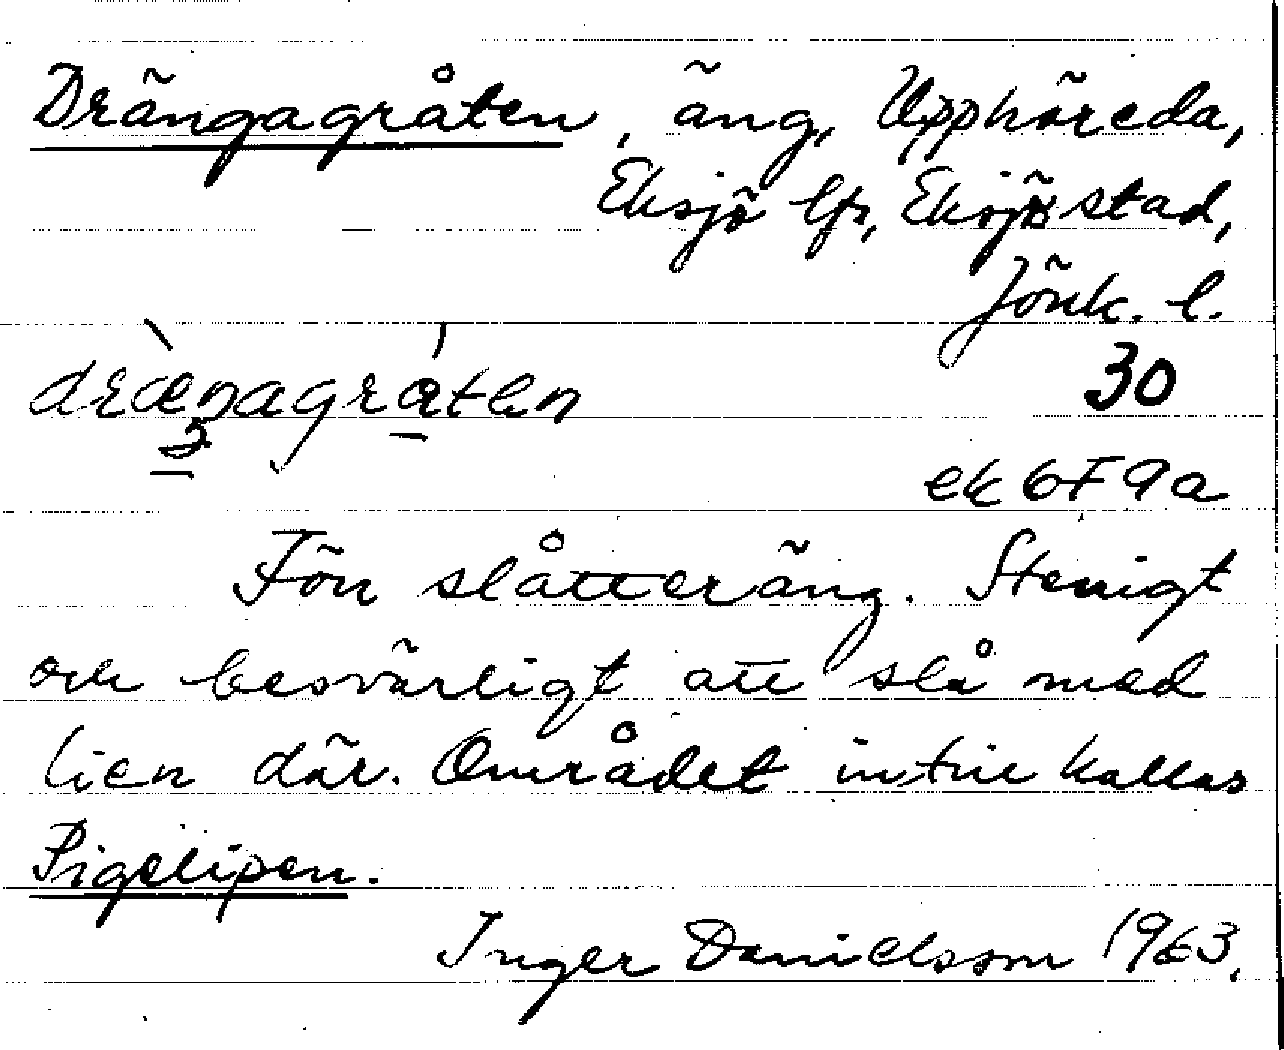 Drängagråten, äng, Upphöreda,
Eksjö lfs, Eksjö stad,
Jönk. l.
30
ek 6F9a
Förr slåtteräng. Stenigt
och besvärligt att slå med
lien där. Området intill kallas
Pigelipen.
Inger Danielsson 1963.